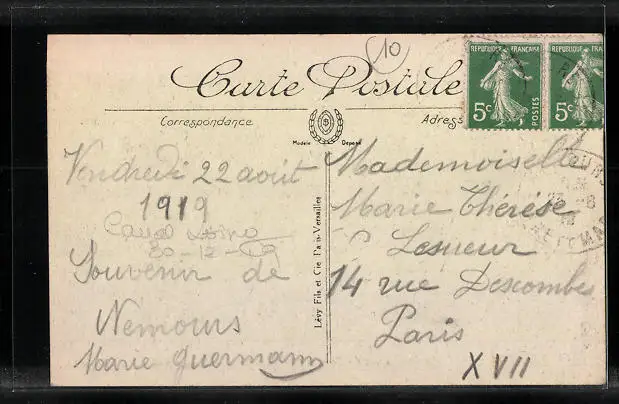 (10
Carte Postale
Correspondance
Adresse
Modèle Déposé
REPUBLIQUE FRANÇAISE
5c
POSTES
REPUBLIQUE FRA
5c
Vendredi 22 août
1919
30-12-
Souvenir de
Nemours
Marie Guermann
Lévy Fils et Cie Paris-Versailles
Mademoiselle
Marie Thérèse
Lesueur
14 rue Descombes
Paris
XVII